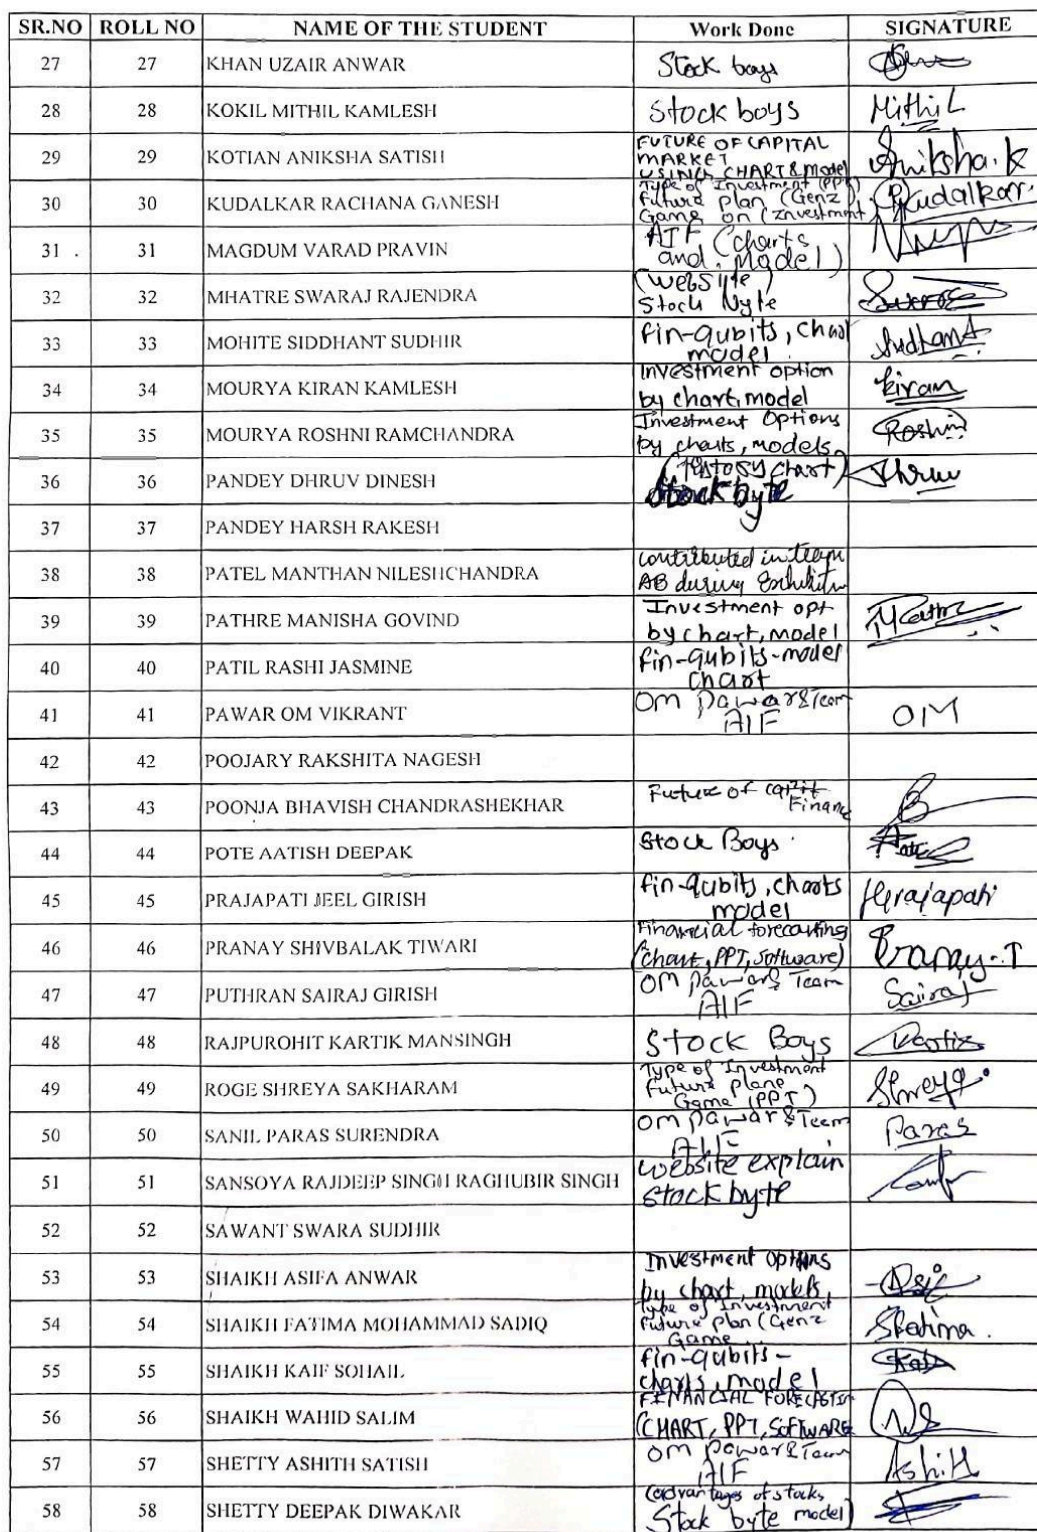 SR.NO ROLL NO NAME OF THE STUDENT Work Done SIGNATURE
27 27 KHAN UZAIR ANWAR Stock boys
28 28 KOKIL MITHIL KAMLESH Stock boys Mithil
29 29 KOTIAN ANIKSHA SATISH FUTURE OF CAPITAL
MARKET
USING CHART & Model Aniksha.K
30 30 KUDALKAR RACHANA GANESH Type of Investment (PPT)
Future plan (Genz)
Game on (Investment RKudalkar.
31 . 31 MAGDUM VARAD PRAVIN AIF (charts
and. Model)
32 32 MHATRE SWARAJ RAJENDRA (Website)
Stock Nyte
33 33 MOHITE SIDDHANT SUDHIR fin-qubits, chart
model . Siddhant
34 34 MOURYA KIRAN KAMLESH Investment option
by chart, model kiran
35 35 MOURYA ROSHNI RAMCHANDRA Investment Options
by charts, models Roshni
36 36 PANDEY DHRUV DINESH (History chart)
Stock byte Dhruv
37 37 PANDEY HARSH RAKESH
38 38 PATEL MANTHAN NILESHCHANDRA contributed in team
AB during Exhibitn
39 39 PATHRE MANISHA GOVIND Investment opt
by chart, model
40 40 PATIL RASHI JASMINE fin-qubits-model
chart
41 41 PAWAR OM VIKRANT OM Pawar & Team
AIF OM
42 42 POOJARY RAKSHITA NAGESH
43 43 POONJA BHAVISH CHANDRASHEKHAR Future of
Finance B
44 44 POTE AATISH DEEPAK Stock Boys
45 45 PRAJAPATI JEEL GIRISH fin-qubits, charts
model JPrajapati
46 46 PRANAY SHIVBALAK TIWARI Financial forecasting
(chart, PPT, Software) Pranay.T
47 47 PUTHRAN SAIRAJ GIRISH OM Pawar & Team
AIF Sairaj
48 48 RAJPUROHIT KARTIK MANSINGH Stock Boys Kartik
49 49 ROGE SHREYA SAKHARAM Type of Investment
Future plane
Game (PPT) Shreya
50 50 SANIL PARAS SURENDRA Om Pawar & Team
AIF Paras
51 51 SANSOYA RAJDEEP SINGH RAGHUBIR SINGH website explain
stock byte
52 52 SAWANT SWARA SUDHIR
53 53 SHAIKH ASIFA ANWAR Investment Options
by chart, models Asif
54 54 SHAIKH FATIMA MOHAMMAD SADIQ Type of Investment
Future plan (Genz
Game SFatima.
55 55 SHAIKH KAIF SOHAIL fin-qubits-
charts, model Kaif
56 56 SHAIKH WAHID SALIM FINANCIAL FORECASTIN
(CHART, PPT, SOFTWARE
57 57 SHETTY ASHITH SATISH OM Pawar & Team
AIF Ashith
58 58 SHETTY DEEPAK DIWAKAR (advantages of stocks,
Stock byte model)